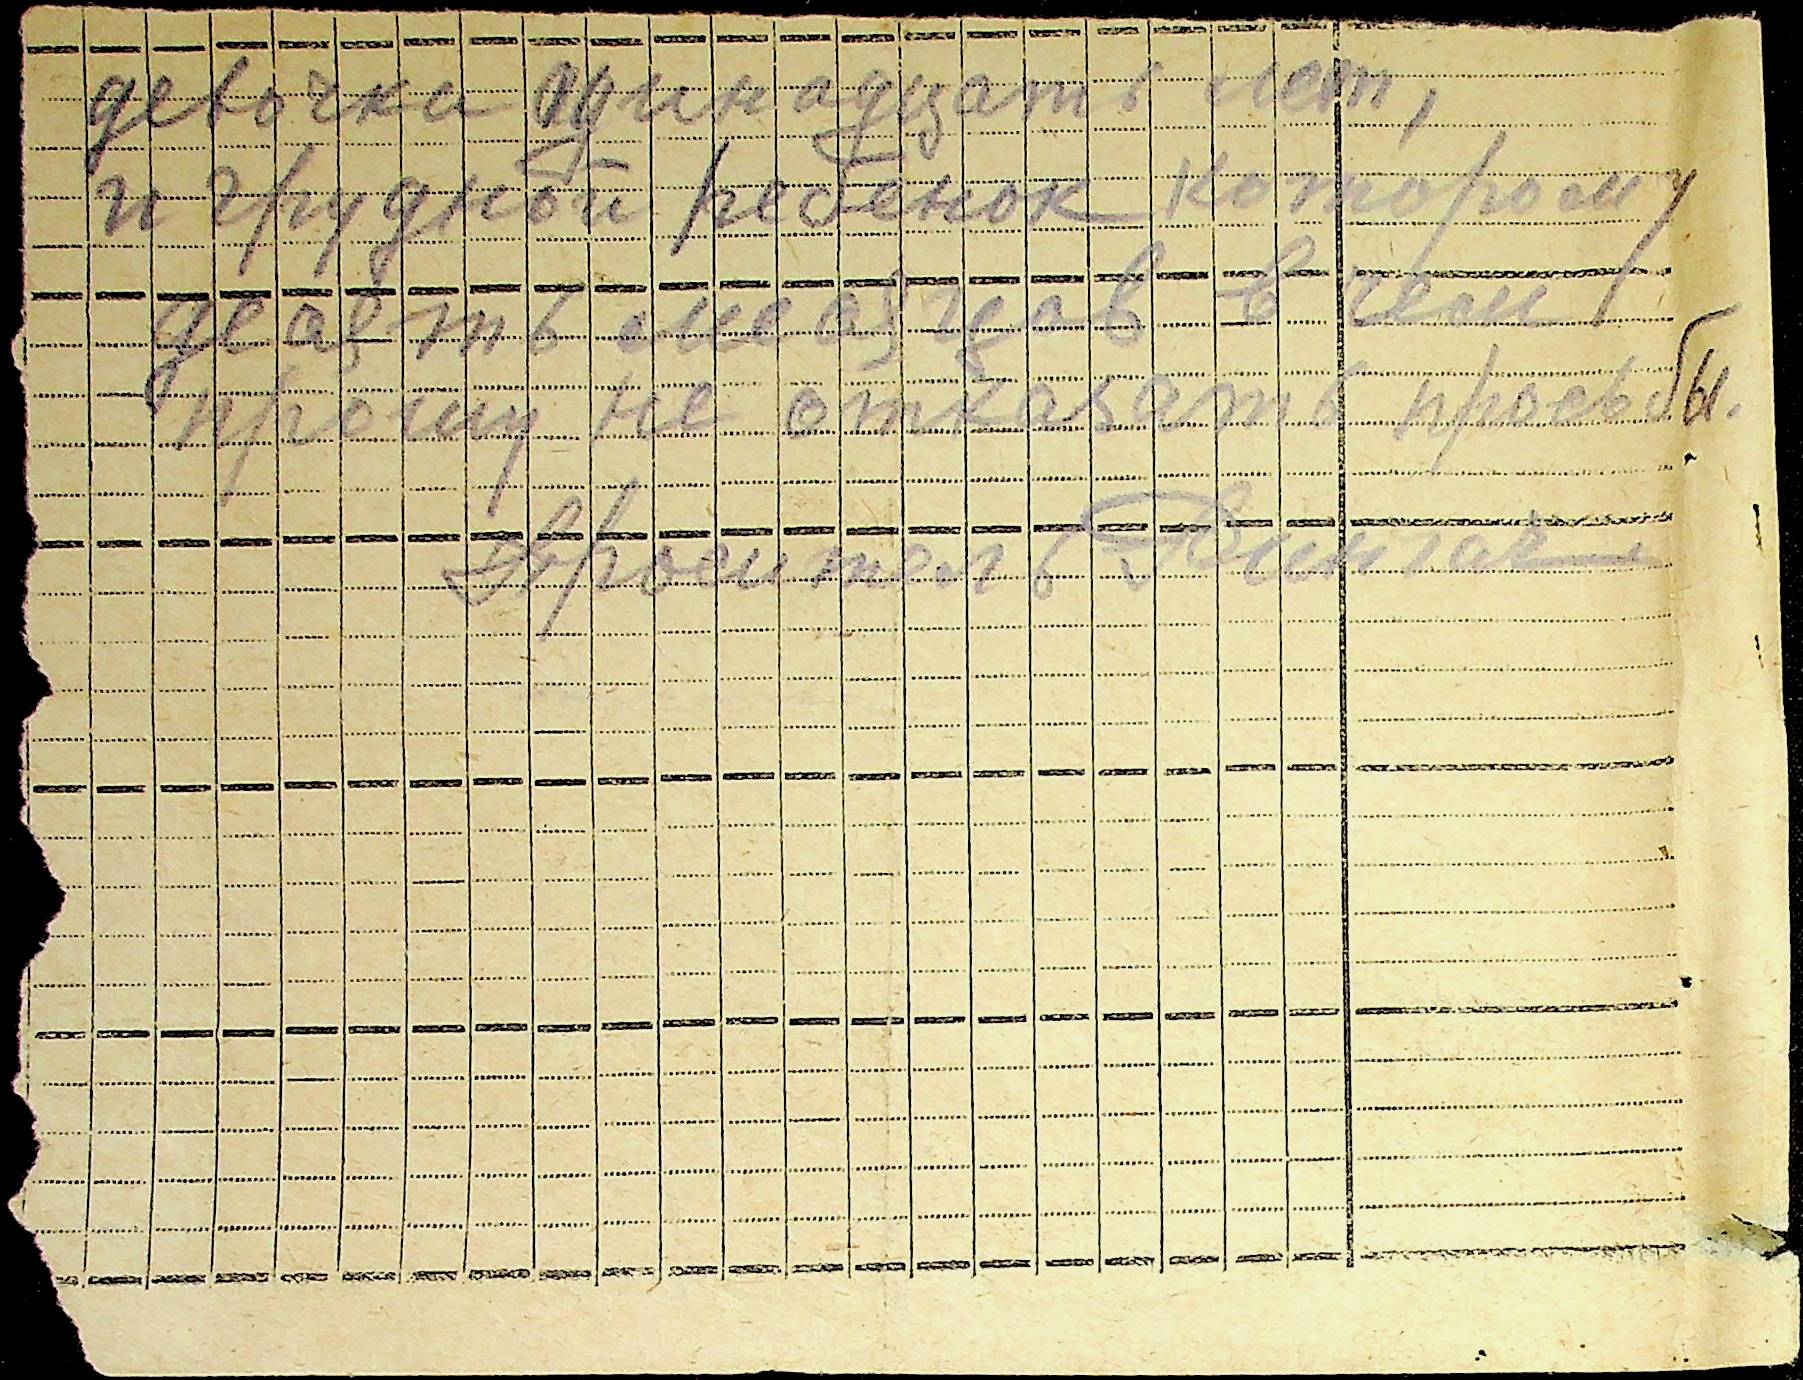 девочки одинадцать лет,
и грудной ребенок которому
деавть меаяцов в чем
прошу не отказать прозьбы.
проситель